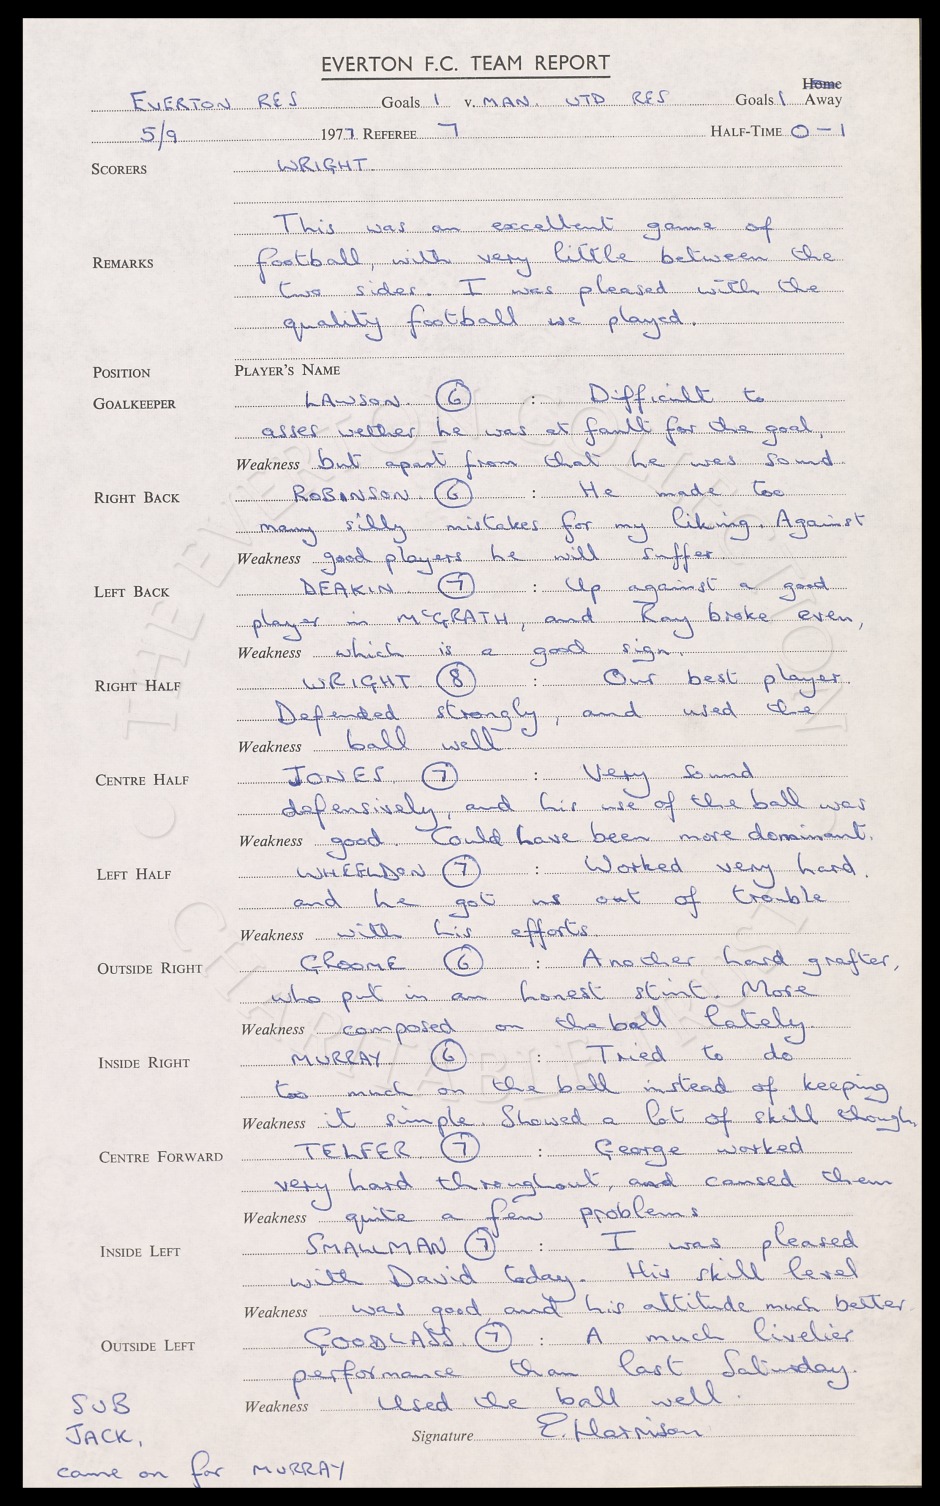 EVERTON F.C. TEAM REPORT
Home
EVERTON RES Goals 1 v. MAN. UTD RES Goals 1 Away
5/9 1977 REFEREE 7 HALF-TIME 0-1
SCORERS WRIGHT.
This was an excellent game of
REMARKS football, with very little between the
two sides. I was pleased with the
quality football we played.
POSITION PLAYER'S NAME
GOALKEEPER LAWSON. 6 : Difficult to
asses wether he was at fault for the goal,
Weakness but apart from that he was sound
RIGHT BACK ROBINSON. 6 : He made too
many silly mistakes for my liking. Against
Weakness good players he will suffer
LEFT BACK DEAKIN. 7 : Up against a good
player in McGRATH, and Ray broke even,
Weakness which is a good sign.
RIGHT HALF WRIGHT 8 : Our best player.
Defended strongly, and used the
Weakness ball well
CENTRE HALF JONES. 7 : Very sound
defensively, and his use of the ball was
Weakness good. Could have been more dominant.
LEFT HALF WHEELDON 7 : Worked very hard,
and he got us out of trouble
Weakness with his efforts.
OUTSIDE RIGHT GROOME 6 : Another hard grafter,
who put in an honest stint. More
Weakness composed on the ball lately.
INSIDE RIGHT MURRAY 6 : Tried to do
too much on the ball instead of keeping
Weakness it simple. Showed a lot of skill though.
CENTRE FORWARD TELFER. 7 : George worked
very hard throughout, and caused them
Weakness quite a few problems
INSIDE LEFT SMALLMAN 7 : I was pleased
with David today. His skill level
Weakness was good and his attitude much better.
OUTSIDE LEFT GOODLASS. 7 : A much livelier
performance than last Saturday.
Weakness Used the ball well.
Signature E. Harrison
SUB
JACK,
came on for MURRAY
THE EVERTON COLLECTION
CHARITABLE TRUST